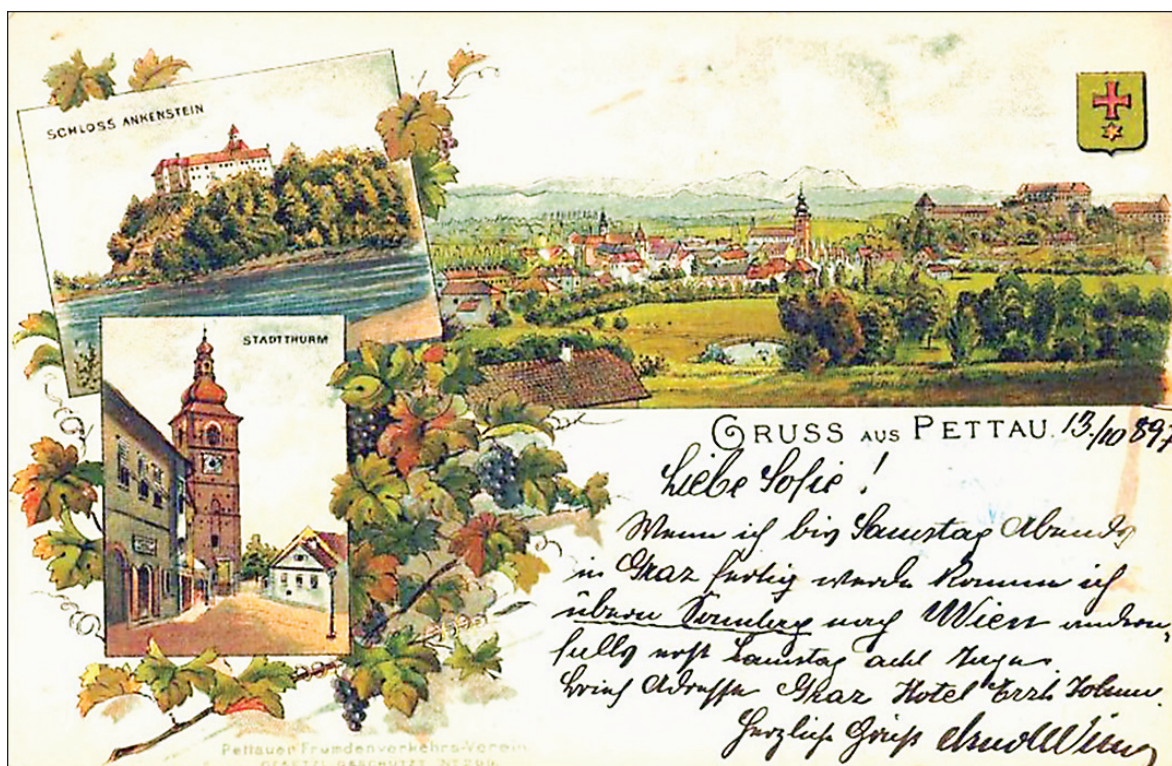 SCHLOSS ANKENSTEIN
STADTTHURM
GRUSS AUS PETTAU. 13./10 897
Liebe Sofie!
Wenn ich bis Samstag Abends
in Graz fertig werde komme ich
übern Sonntag nach Wien andern-
falls erst Samstag acht Tage.
Brief Adresse Graz Hotel Erzh Johann.
Herzliche Grüße
Pettauer Fremdenverkehrs-Verein
GESETZL. GESCHÜTZT. Nr